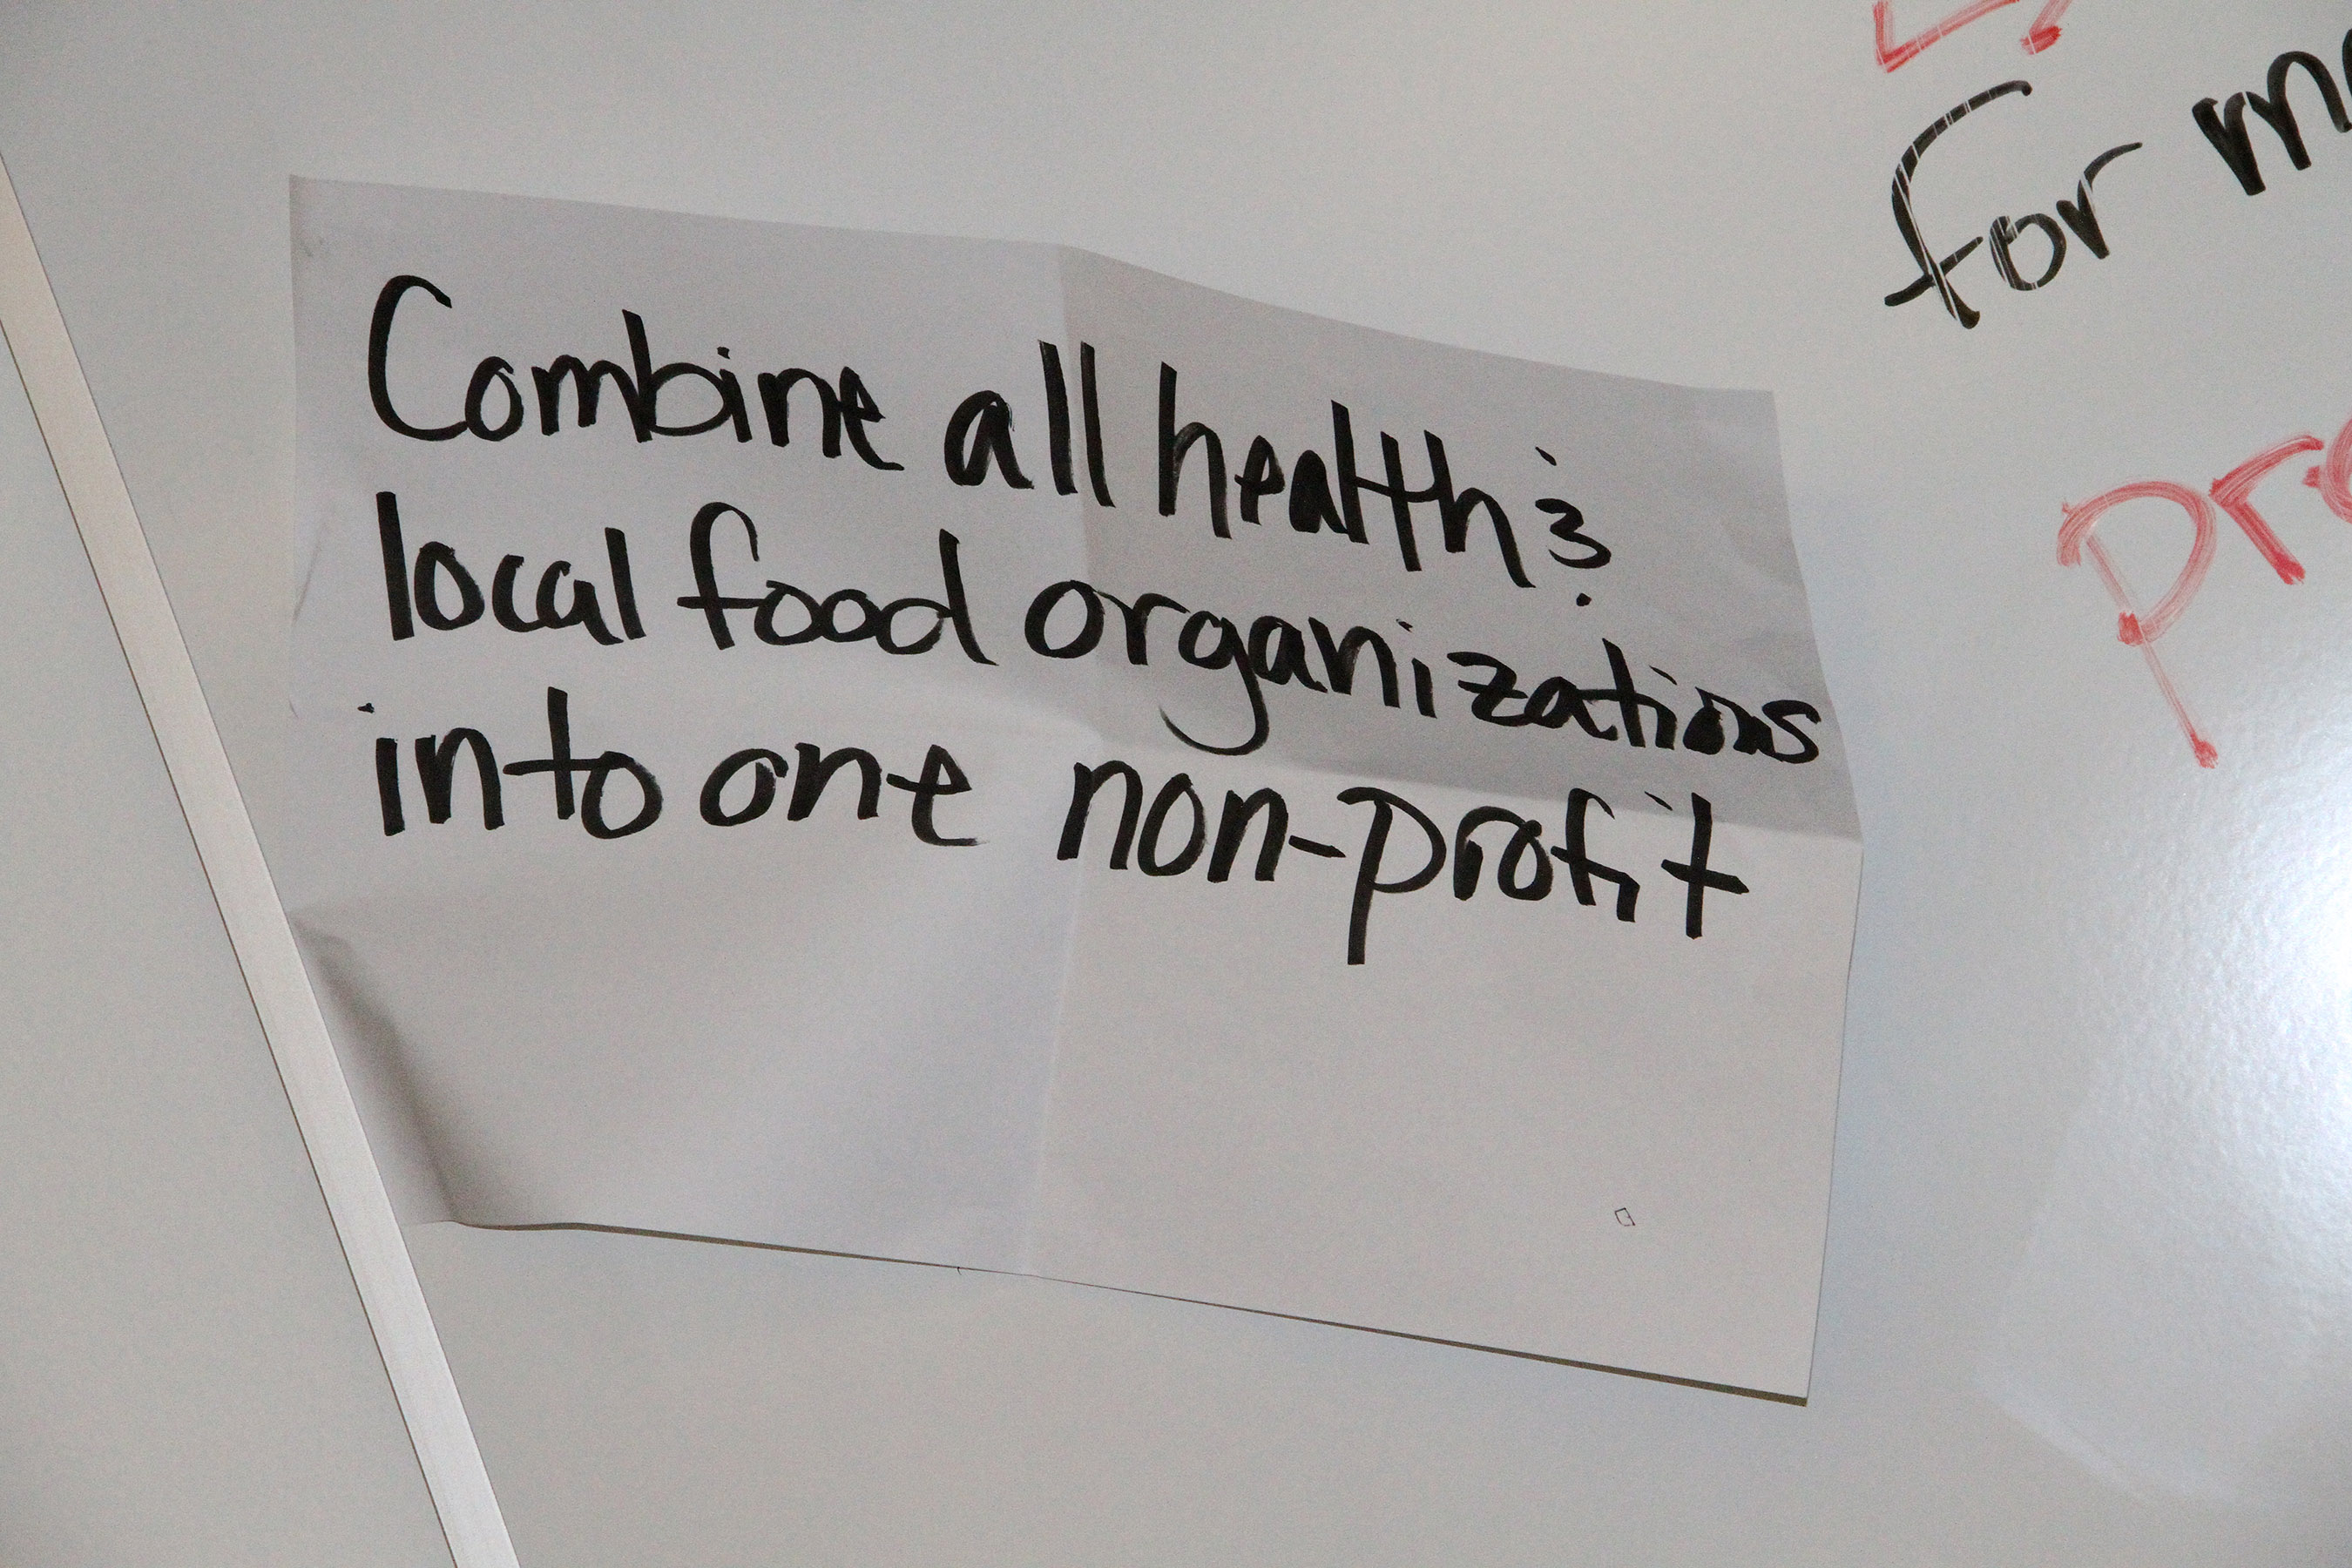 Combine all health &
local food organizations
into one non-profit
for